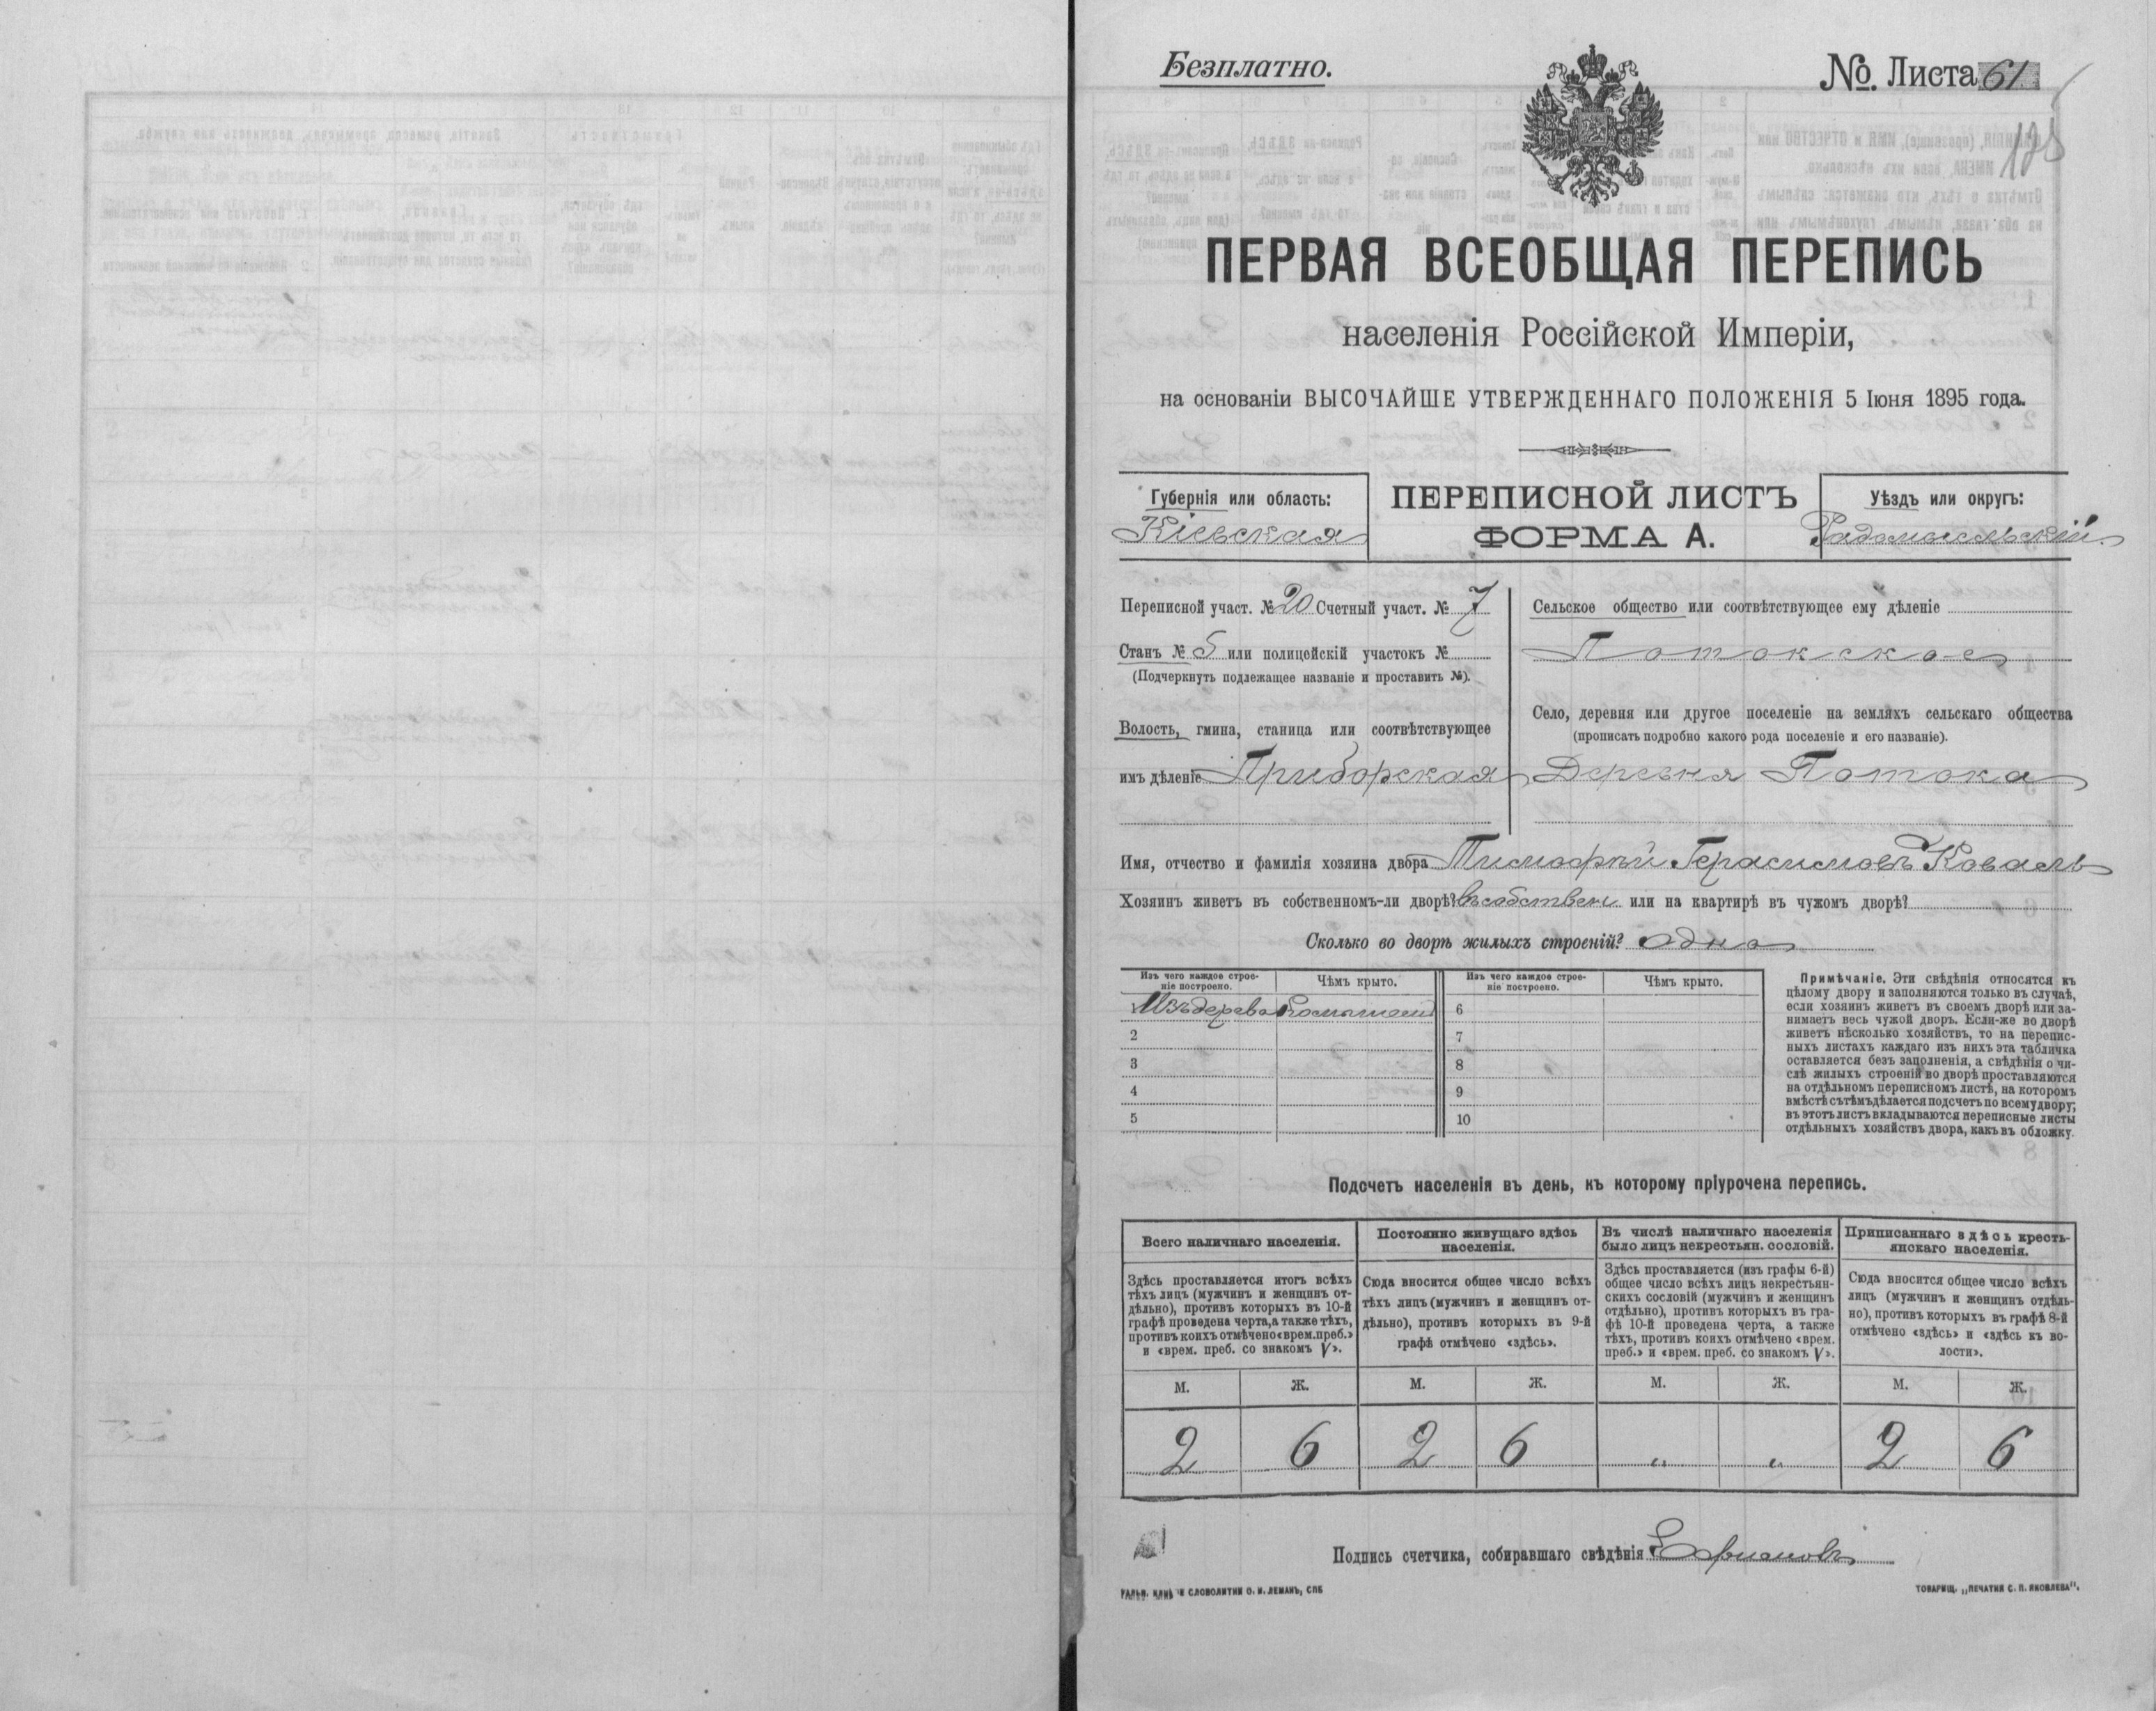 Безплатно.
№. Листа 61
125
ПЕРВАЯ ВСЕОБЩАЯ ПЕРЕПИСЬ
населенія Россійской Имперіи,
на основаніи ВЫСОЧАЙШЕ УТВЕРЖДЕННАГО ПОЛОЖЕНІЯ 5 Іюня 1895 года.
Губернія или область:
Кіевская
ПЕРЕПИСНОЙ ЛИСТЪ
ФОРМА А.
Уѣздъ или округъ:
Радомысльскій
Переписной участ. № 20 Счетный участ. № 7
Станъ № 5 или полицейскій участокъ №
(Подчеркнуть подлежащее названіе и проставить №).
Волость, гмина, станица или соотвѣтствующее
имъ дѣленіе Приборская
Сельское общество или соотвѣтствующее ему дѣленіе
Потокское
Село, деревня или другое поселеніе на земляхъ сельскаго общества
(прописать подробно какого рода поселеніе и его названіе).
Деревня Потока
Имя, отчество и фамилія хозяина двора Тимофѣй Герасимовъ Коваль
Хозяинъ живетъ въ собственномъ-ли дворѣ? въ собствен или на квартирѣ въ чужомъ дворѣ?
Сколько во дворѣ жилыхъ строеній? одно
Изъ чего каждое строе-
ніе построено.
Чѣмъ крыто.
Изъ чего каждое строе-
ніе построено.
Чѣмъ крыто.
1 Изъ дерева
6
2
7
3
8
4
9
5
10
Примѣчаніе. Эти свѣдѣнія относятся къ
цѣлому двору и заполняются только въ случаѣ,
если хозяинъ живетъ въ своемъ дворѣ или за-
нимаетъ весь чужой дворъ. Если-же во дворѣ
живетъ нѣсколько хозяйствъ, то на перепис-
ныхъ листахъ каждаго изъ нихъ эта табличка
оставляется безъ заполненія, а свѣдѣнія о чи-
слѣ жилыхъ строеній во дворѣ проставляются
на отдѣльномъ переписномъ листѣ, на которомъ
вмѣстѣ съ тѣмъ дѣлается подсчетъ по всему двору;
въ этотъ листъ вкладываются переписные листы
отдѣльныхъ хозяйствъ двора, какъ въ обложку.
Подсчетъ населенія въ день, къ которому пріурочена перепись.
Всего наличнаго населенія.
Постоянно живущаго здѣсь
населенія.
Въ числѣ наличнаго населенія
было лицъ некрестьян. сословій.
Приписаннаго здѣсь кресть-
янскаго населенія.
Здѣсь проставляется итогъ всѣхъ
тѣхъ лицъ (мужчинъ и женщинъ от-
дѣльно), противъ которыхъ въ 10-й
графѣ проведена черта, а также тѣхъ,
противъ коихъ отмѣчено «врем. преб.»
и «врем. преб. со знакомъ V».
Сюда вносится общее число всѣхъ
тѣхъ лицъ (мужчинъ и женщинъ от-
дѣльно), противъ которыхъ въ 9-й
графѣ отмѣчено «здѣсь».
Здѣсь проставляется (изъ графы 6-й)
общее число всѣхъ лицъ некрестьян-
скихъ сословій (мужчинъ и женщинъ
отдѣльно), противъ которыхъ въ гра-
фѣ 10-й проведена черта, а также
тѣхъ, противъ коихъ отмѣчено «врем.
преб.» и «врем. преб. со знакомъ V».
Сюда вносится общее число всѣхъ
лицъ (мужчинъ и женщинъ отдѣль-
но), противъ которыхъ въ графѣ 8-й
отмѣчено «здѣсь» и «здѣсь къ во-
лости».
М. Ж. М. Ж. М. Ж. М. Ж.
2 6 2 6 „ „ 2 6
Подпись счетчика, собиравшаго свѣдѣнія
СЛОВОЛИТНИ О. И. ЛЕМАНЪ, СПБ
ТОВАРИЩ. „ПЕЧАТНЯ С. П. ЯКОВЛЕВА".